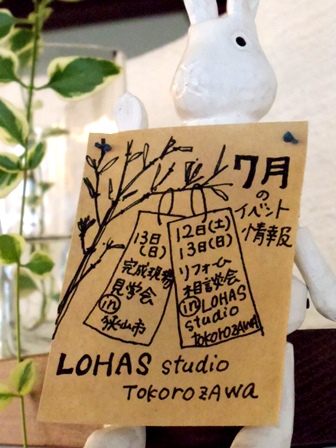 7月
の
イベント
情報
12日(土)
13日(日)
リフォーム
相談会
in LOHAS
studio
tokorozawa
13日
(日)
完成現場
見学会
in
狭山市
LOHAS studio
TOKOROZAWA